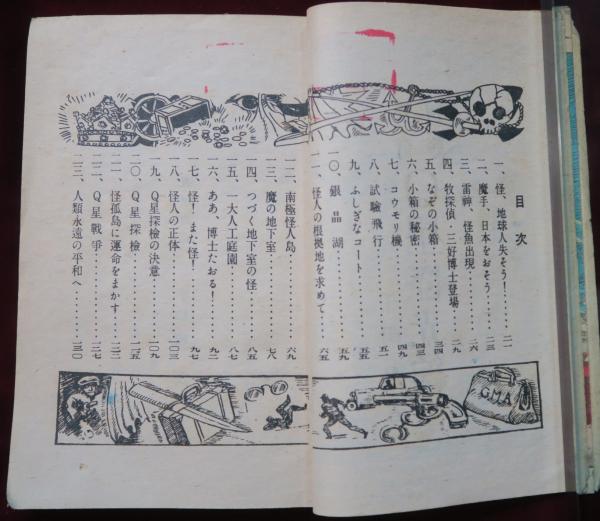 目次
一、怪、地球人失そう!・・・・二一
二、魔手、日本をおそう・・・・二三
三、雷神、怪魚出現・・・・二六
四、牧探偵・三好博士登場・・・・二九
五、なぞの小箱・・・・三四
六、小箱の秘密・・・・四三
七、コウモリ機・・・・四九
八、試驗飛行・・・・五一
九、ふしぎなコート・・・・五五
一〇、銀晶湖・・・・五九
一一、怪人の根拠地を求めて・・・・六五
一二、南極怪人島・・・・六九
一三、魔の地下室・・・・七八
一四、つづく地下室の怪・・・・八五
一五、一大人工庭園・・・・八七
一六、ああ、博士たおる!・・・・九二
一七、怪!また怪!・・・・九七
一八、怪人の正体・・・・一〇三
一九、Q星探檢の決意・・・・一〇九
二〇、Q星探檢・・・・一一五
二一、怪孤島に運命をまかす・・・・一二二
二二、Q星戰爭・・・・一二七
二三、人類永遠の平和へ・・・・一三〇
GMA